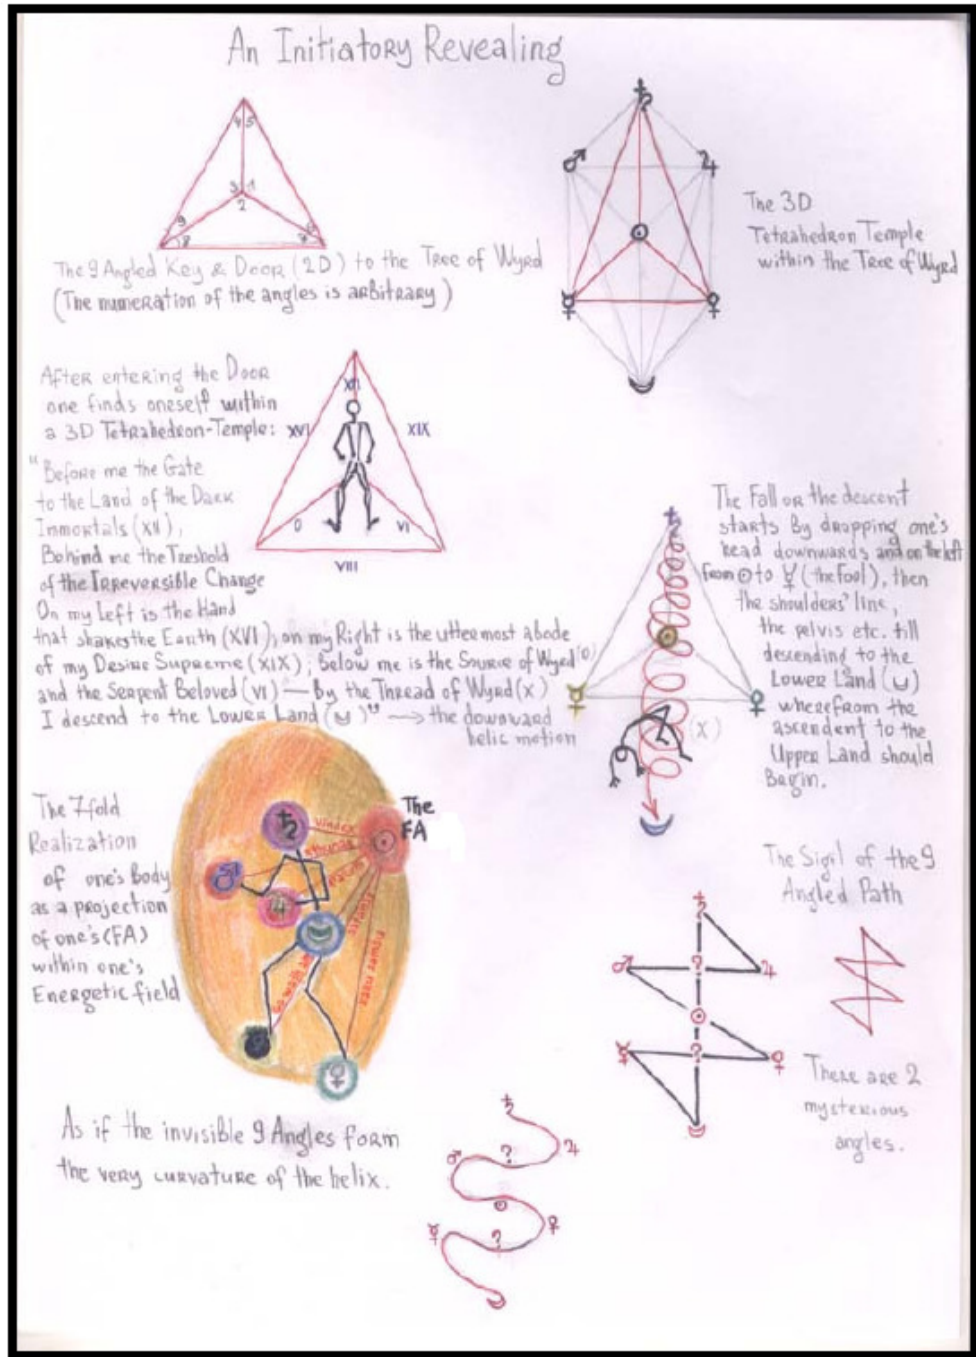 An Initiatory Revealing
4 5
3 1
2
9
8
7
The 9 Angled Key & Door (2D) to the Tree of Wyrd
(The numeration of the angles is arbitrary)
♄
♂ ♃
☉
☿ ♀
☾
The 3D
Tetrahedron Temple
within the Tree of Wyrd
After entering the Door
one finds oneself within
a 3D Tetrahedron-Temple:
"Before me the Gate
to the Land of the Dark
Immortals (XII),
Behind me the Treshold
of the Irreversible Change
On my Left is the Hand
that shakes the Earth (XVI), on my Right is the uttermost abode
of my Desire Supreme (XIX); Below me is the Source of Wyrd (0)
and the Serpent Beloved (VI) — By the Thread of Wyrd (X)
I descend to the Lower Land (☾)" → the downward
helic motion
XVI XIX
0 VI
VIII
The Fall or the descent
starts By dropping one's
head downwards and on the left
from ☉ to ☿ (the Fool), then
the shoulders' line,
the pelvis etc. till
descending to the
Lower Land (☾)
wherefrom the
ascendent to the
Upper Land should
Begin.
♄
☉
☿ ♀
(X)
☾
The 7fold
Realization
of one's Body
as a projection
of one's (FA)
within one's
Energetic field
The
FA
♄
☉
♂
♃
☾
♀
vindex
The Sigil of the 9
Angled Path
♄
♂ ? ♃
☉
☿ ? ♀
☾
There are 2
mysterious
angles.
As if the invisible 9 Angles form
the very curvature of the helix.
♄
♂ ? ♃
☉
☿ ? ♀
☾